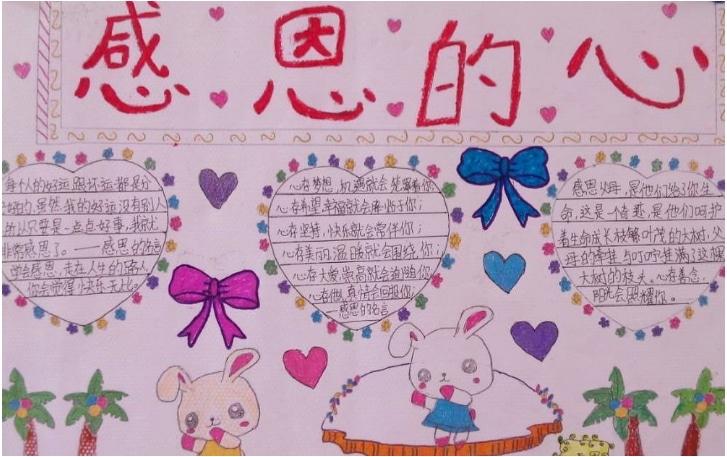 感恩的心
每个人的好运跟坏运都是分
的,虽然我的好运没有别人
的从只要是一点点好事,我就
非常感恩了。——感恩的名言
学会感恩,走在人生的路上
你会觉得快乐无比。
心存梦想,机遇就会笼罩着你
心存希望,幸福就会降临于你;
心存坚持,快乐就会常伴你;
心存美丽,温暖就会围绕你;
心存大爱,崇高就会追随你
心存他,真情会回报你;
——感恩的名言
感恩父母,是他们给了你生
命,这是一个慈悲,是他们呵护
着生命成长枝繁叶茂的大树,父
母的牵挂与叮咛挂满了这棵
大树的枝头。心存善念,
阳光会照耀你。